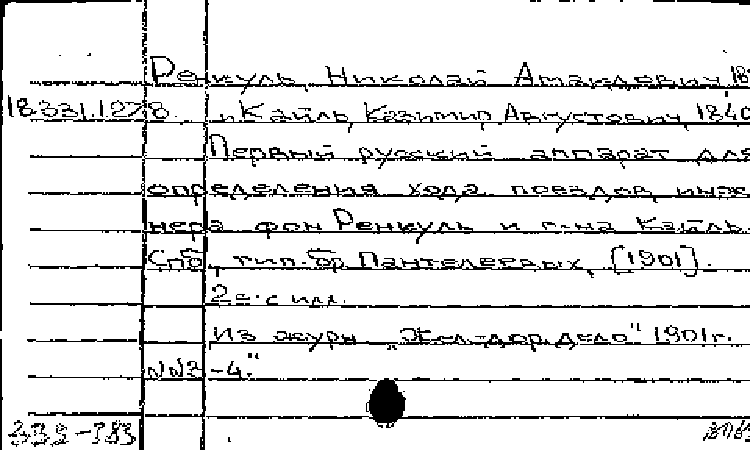 Ренкуль, Николай Амандович, 18
18.331.1.278 „Кайль, Казимир Августович, 1840
Первый русский аппарат для
определения хода поездов инже-
нера фон Ренкуль и г-на Кайль.
Спб, тип. бр. Пантелеевых, [1901].
с илл.
Из журн. „Жел.-дор. дело" 1901 г.
NN3-4."
339-383